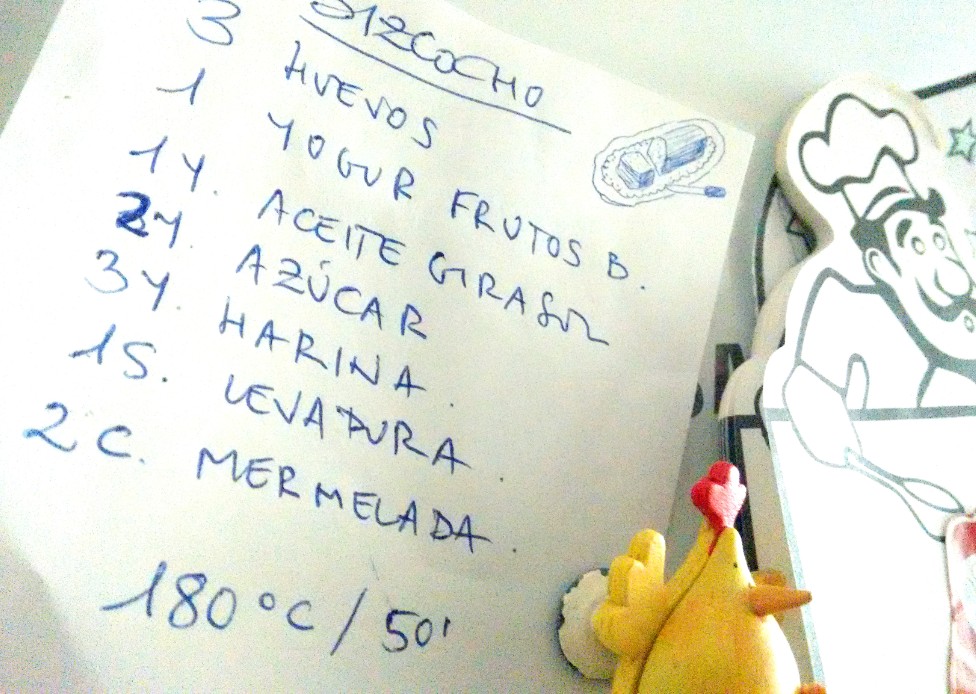 BIZCOCHO
3 HUEVOS
1 YOGUR FRUTOS B.
1Y. ACEITE GIRASOL
2Y. AZÚCAR
3Y. HARINA.
1S. LEVADURA.
2C. MERMELADA.
180°C / 50'